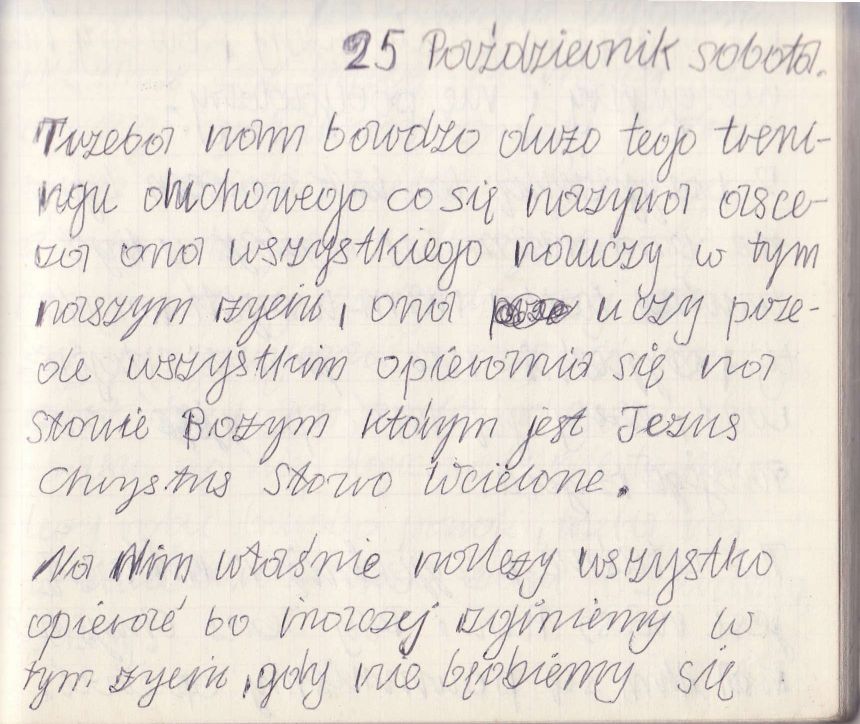 25 Październik sobota.
Trzeba nam bardzo dużo tego treni-
ngu duchowego co się nazywa asce-
za ona wszystkiego nauczy w tym
naszym życiu, ona uczy prze-
de wszystkim opierania się na
Słowie Bożym którym jest Jezus
Chrystus Słowo Wcielone.
Na Nim właśnie należy wszystko
opierać bo inaczej zginiemy w
tym życiu, gdy nie będziemy się